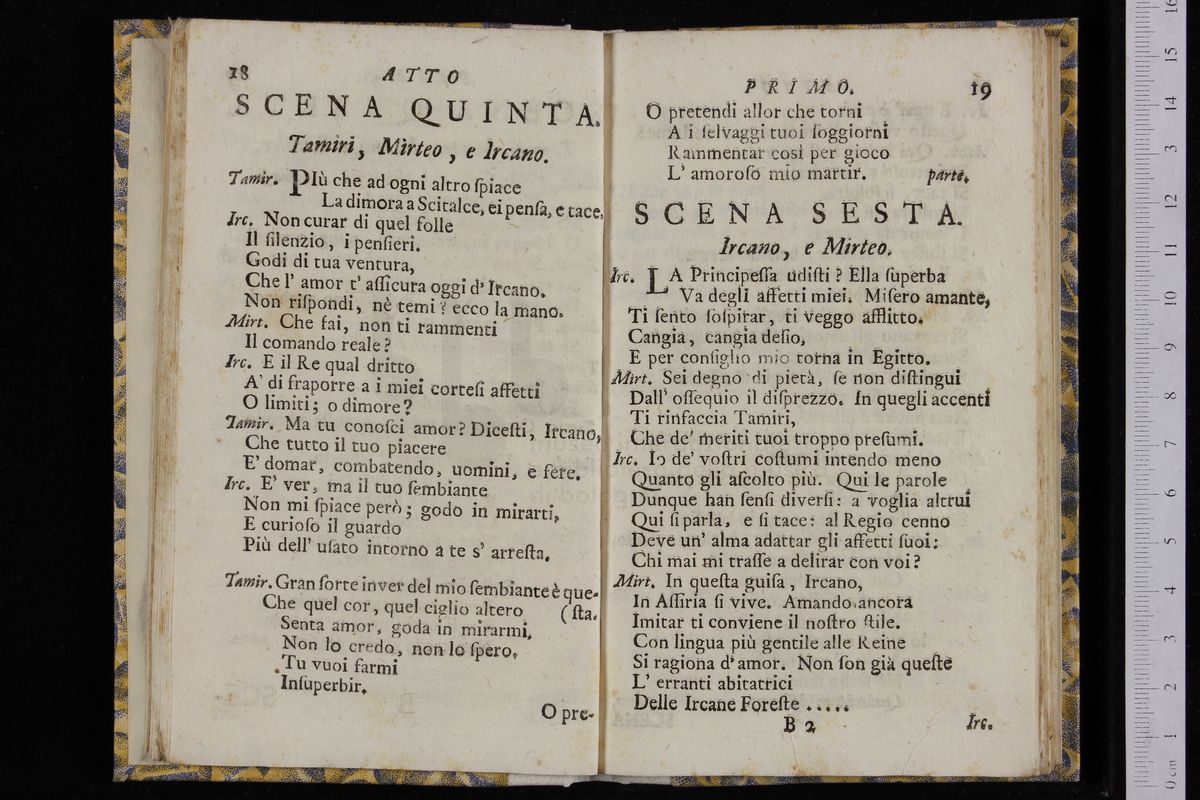 18 ATTO
SCENA QUINTA.
Tamiri, Mirteo, e Ircano.
Tamir. PIù che ad ogni altro ſpiace
La dimora a Scitalce, ei penſa, e tace,
Irc. Non curar di quel folle
Il ſilenzio, i penſieri.
Godi di tua ventura,
Che l' amor t' aſſicura oggi d' Ircano.
Non riſpondi, nè temi? ecco la mano.
Mirt. Che fai, non ti rammenti
Il comando reale?
Irc. E il Re qual dritto
A' di fraporre a i miei corteſi affetti
O limiti; o dimore?
Tamir. Ma tu conoſci amor? Diceſti, Ircano,
Che tutto il tuo piacere
E' domar, combatendo, uomini, e fere.
Irc. E' ver, ma il tuo ſembiante
Non mi ſpiace però; godo in mirarti,
E curioſo il guardo
Più dell' uſato intorno a te s' arreſta.
Tamir. Gran ſorte inver del mio ſembiante è que-
Che quel cor, quel ciglio altero (ſta.
Senta amor, goda in mirarmi,
Non lo credo, non lo ſpero,
Tu vuoi farmi
Inſuperbir.
O pre-
PRIMO. 19
O pretendi allor che torni
A i ſelvaggi tuoi ſoggiorni
Rammentar così per gioco
L' amoroſo mio martir. parte.
SCENA SESTA.
Ircano, e Mirteo.
Irc. LA Principeſſa udiſti? Ella ſuperba
Va degli affetti miei. Miſero amante,
Ti ſento ſoſpirar, ti veggo afflitto.
Cangia, cangia deſio,
E per conſiglio mio torna in Egitto.
Mirt. Sei degno di pietà, ſe non diſtingui
Dall' oſſequio il diſprezzo. In quegli accenti
Ti rinfaccia Tamiri,
Che de' meriti tuoi troppo preſumi.
Irc. Io de' voſtri coſtumi intendo meno
Quanto gli aſcolto più. Qui le parole
Dunque han ſenſi diverſi: a voglia altrui
Qui ſi parla, e ſi tace: al Regio cenno
Deve un' alma adattar gli affetti ſuoi:
Chi mai mi traſſe a delirar con voi?
Mirt. In queſta guiſa, Ircano,
In Aſſiria ſi vive. Amando ancora
Imitar ti conviene il noſtro ſtile.
Con lingua più gentile alle Reine
Si ragiona d' amor. Non ſon già queſte
L' erranti abitatrici
Delle Ircane Foreſte .....
B 2 Irc.
0 cm 1 2 3 4 5 6 7 8 9 10 11 12 13 14 15 16